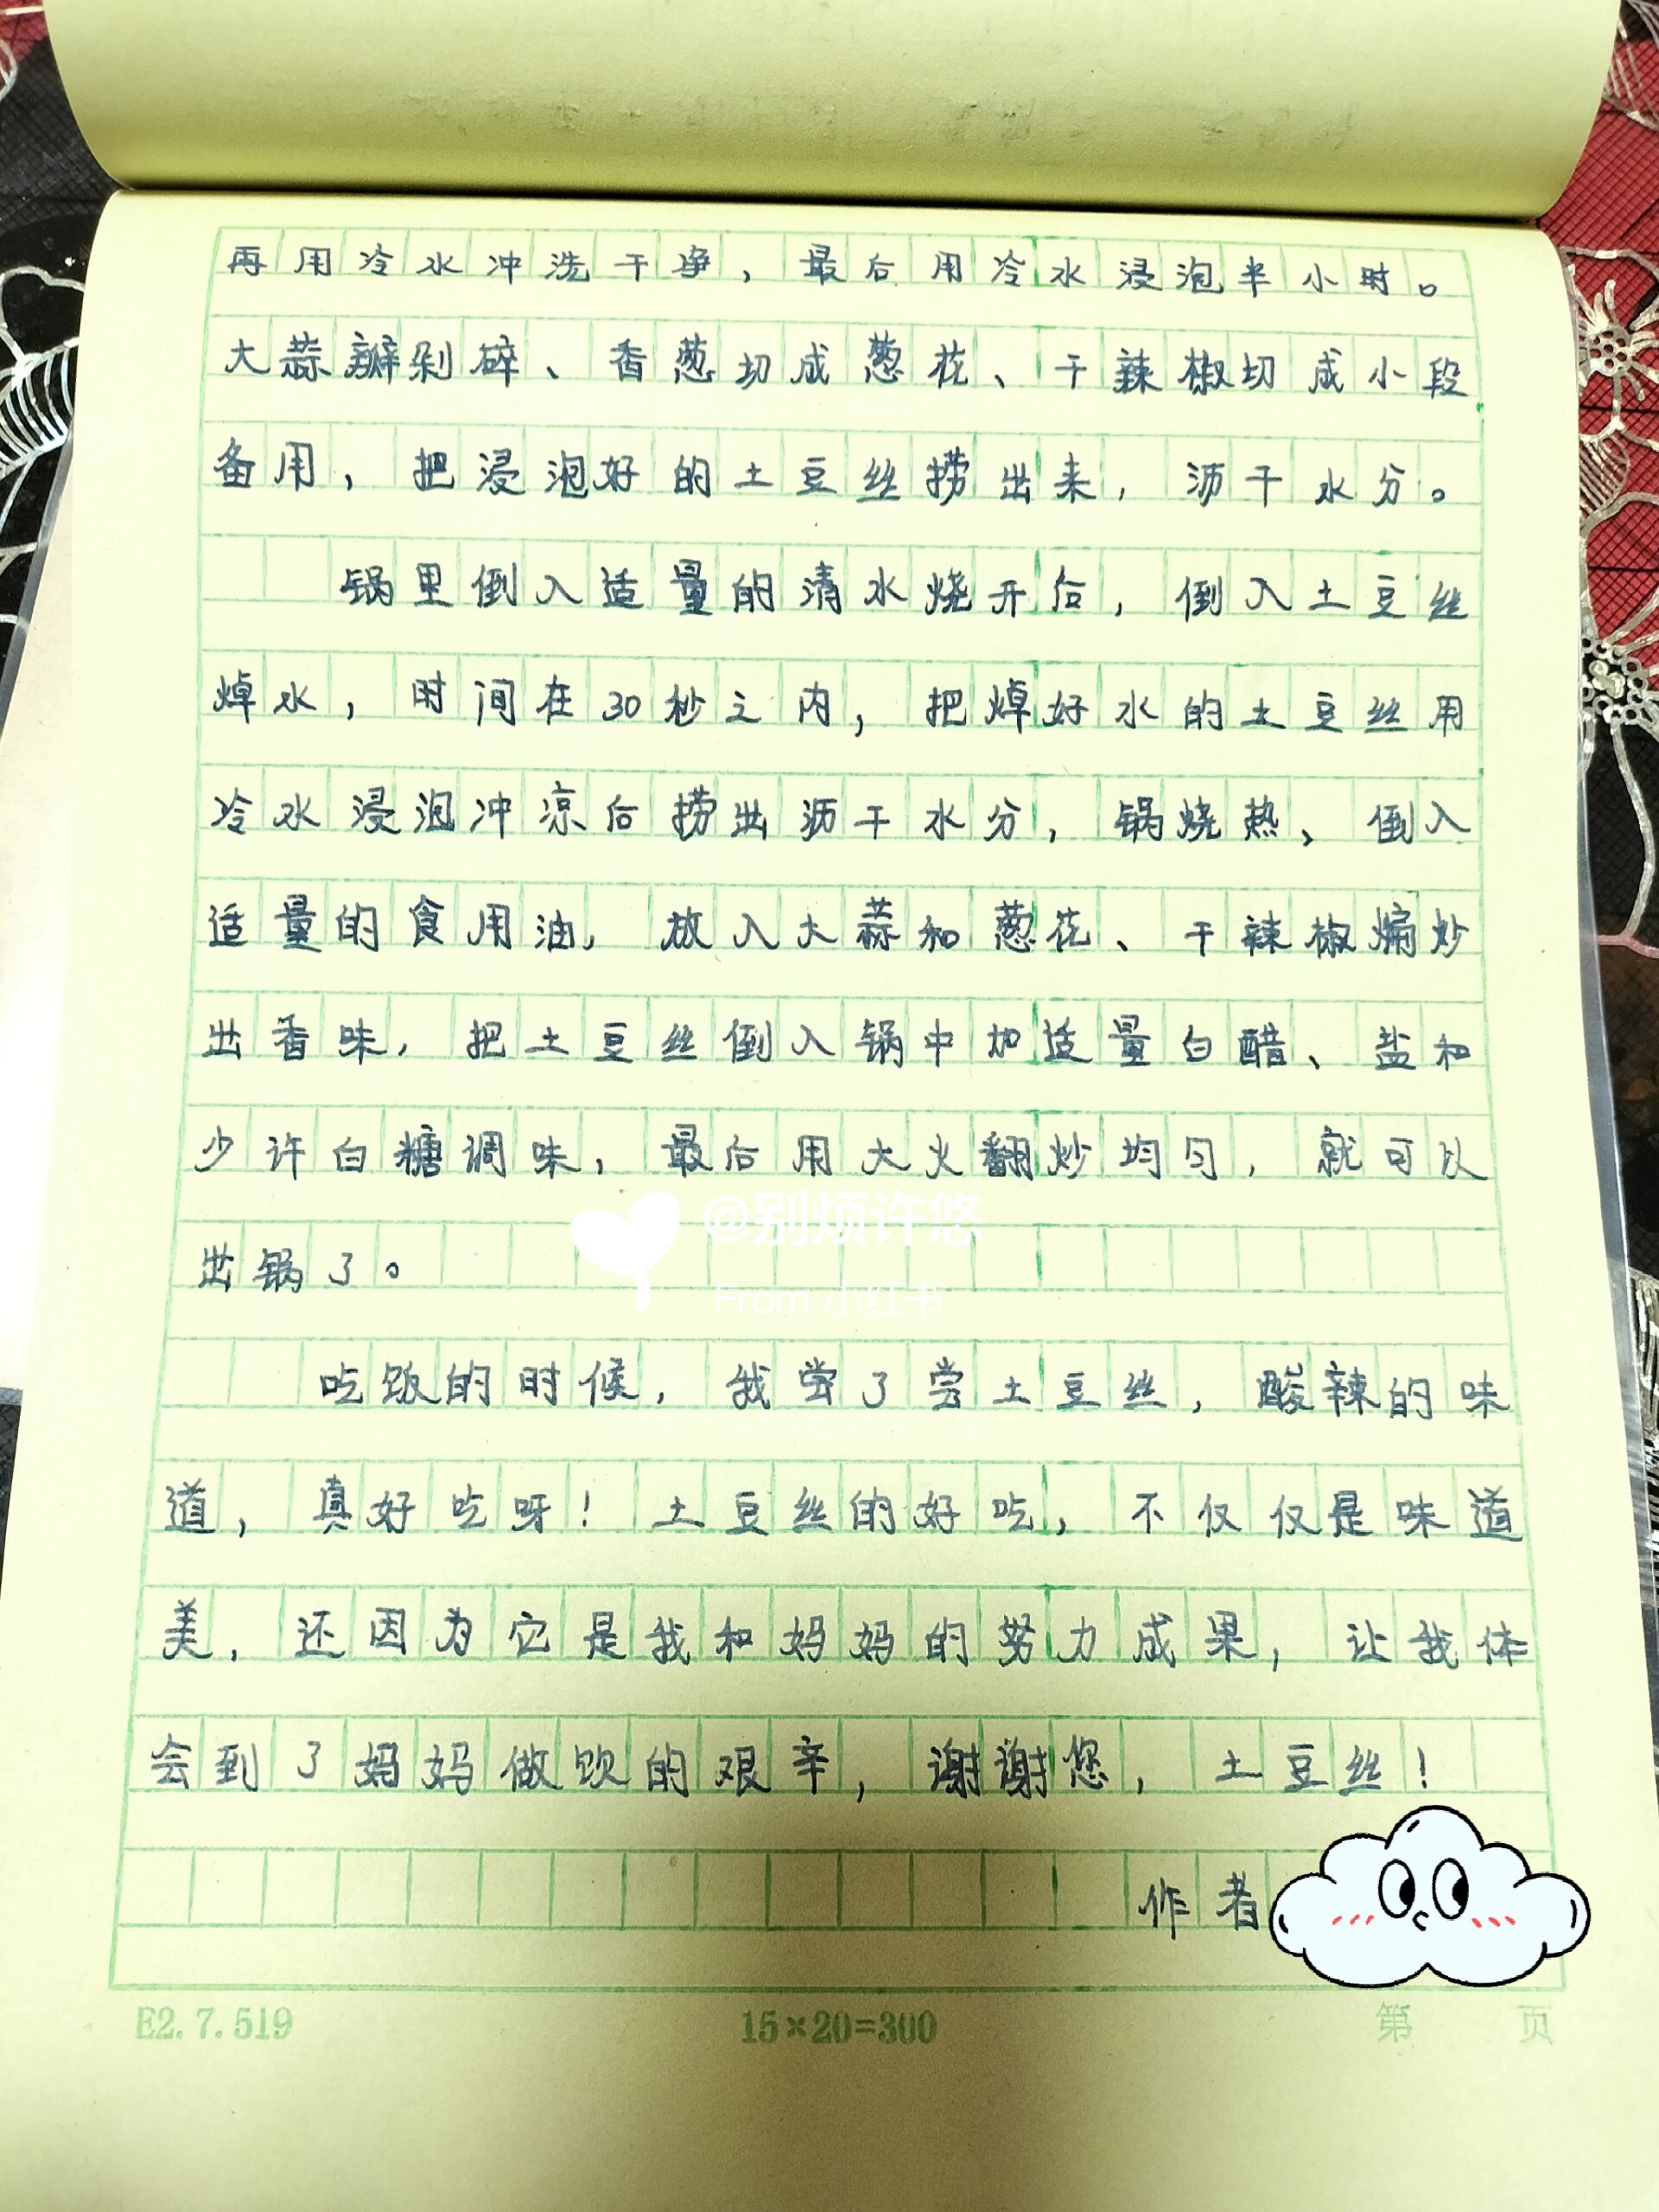 再用冷水冲洗干净，最后用冷水浸泡半小时。
大蒜瓣剁碎、香葱切成葱花、干辣椒切成小段
备用，把浸泡好的土豆丝捞出来，沥干水分。
锅里倒入适量的清水烧开后，倒入土豆丝
焯水，时间在30秒之内，把焯好水的土豆丝用
冷水浸泡冲凉后捞出沥干水分，锅烧热，倒入
适量的食用油，放入大蒜和葱花、干辣椒煸炒
出香味，把土豆丝倒入锅中加适量白醋、盐和
少许白糖调味，最后用大火翻炒均匀，就可以
出锅了。
@别烦许悠
From 小红书
吃饭的时候，我尝了尝土豆丝，酸辣的味
道，真好吃呀！土豆丝的好吃，不仅仅是味道
美，还因为它是我和妈妈的努力成果，让我体
会到了妈妈做饭的艰辛，谢谢您，土豆丝！
作者
E2.7.519 15×20=300 第 页